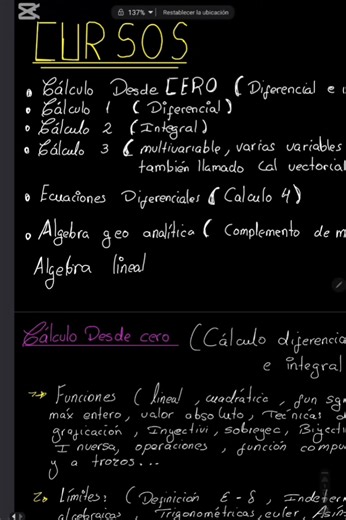 137%
Restablecer la ubicación
CURSOS
• Cálculo Desde CERO ( Diferencial e
• Cálculo 1 ( Diferencial )
• Cálculo 2 ( Integral )
• Cálculo 3 ( multivariable, varias variables
también llamado Cal vectorial
• Ecuaciones Diferenciales ( Calculo 4 )
• Algebra geo analítica ( Complemento de m
Algebra lineal
Cálculo Desde cero ( Cálculo diferencia
e integral
Funciones ( lineal, cuadrático, fun sg
máx entero, valor absoluto, Técnicas d
graficación, Inyectivi, sobreyec, Biyecti
Inversa, operaciones, función compu
y a trozos...
Límites: ( Definición E - δ, Indeterm
algebraicas, Trigonométricas, euler, Asín